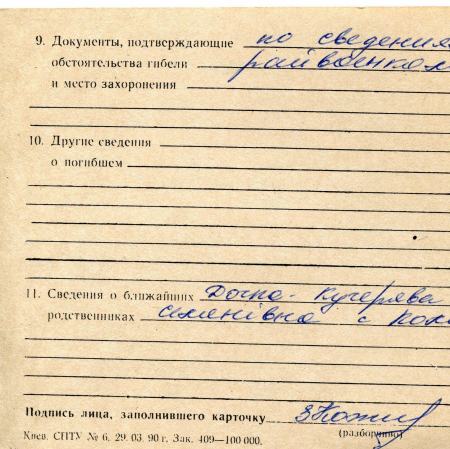 9. Документы, подтверждающие по сведениям
обстоятельства гибели райвоенком
и место захоронения
10. Другие сведения
о погибшем
11. Сведения о ближайших Дочка - Кучерява
родственниках Семенівна с
Подпись лица, заполнившего карточку
(разборчиво)
Киев. СПТУ № 6. 29. 03. 90 г. Зак. 409—100 000.